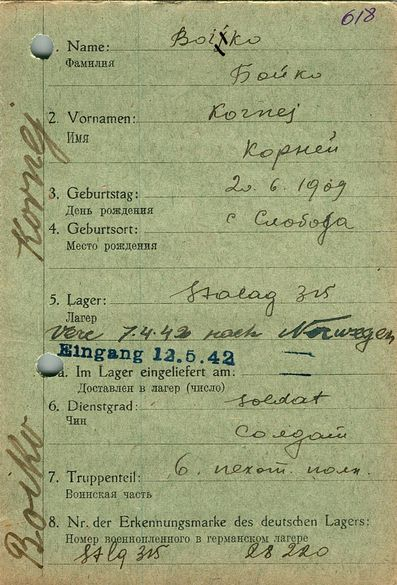 618
1. Name: Boiko
Фамилия
Бойко
2. Vornamen: Kornej
Имя
Корней
3. Geburtstag: 20. 6. 1909
День рождения
4. Geburtsort: с Слобода
Место рождения
5. Lager: Stalag 315
Лагер
7.4.42 nach Norwegen
Eingang 12.5.42
a. Im Lager eingeliefert am:
Доставлен в лагер (число)
6. Dienstgrad: Soldat
Чин
Солдат
7. Truppenteil: 6. пехот. полк.
Воинская часть
8. Nr. der Erkennungsmarke des deutschen Lagers:
Номер военнопленного в германском лагере
Stlg 315 28 220
Boiko Kornej